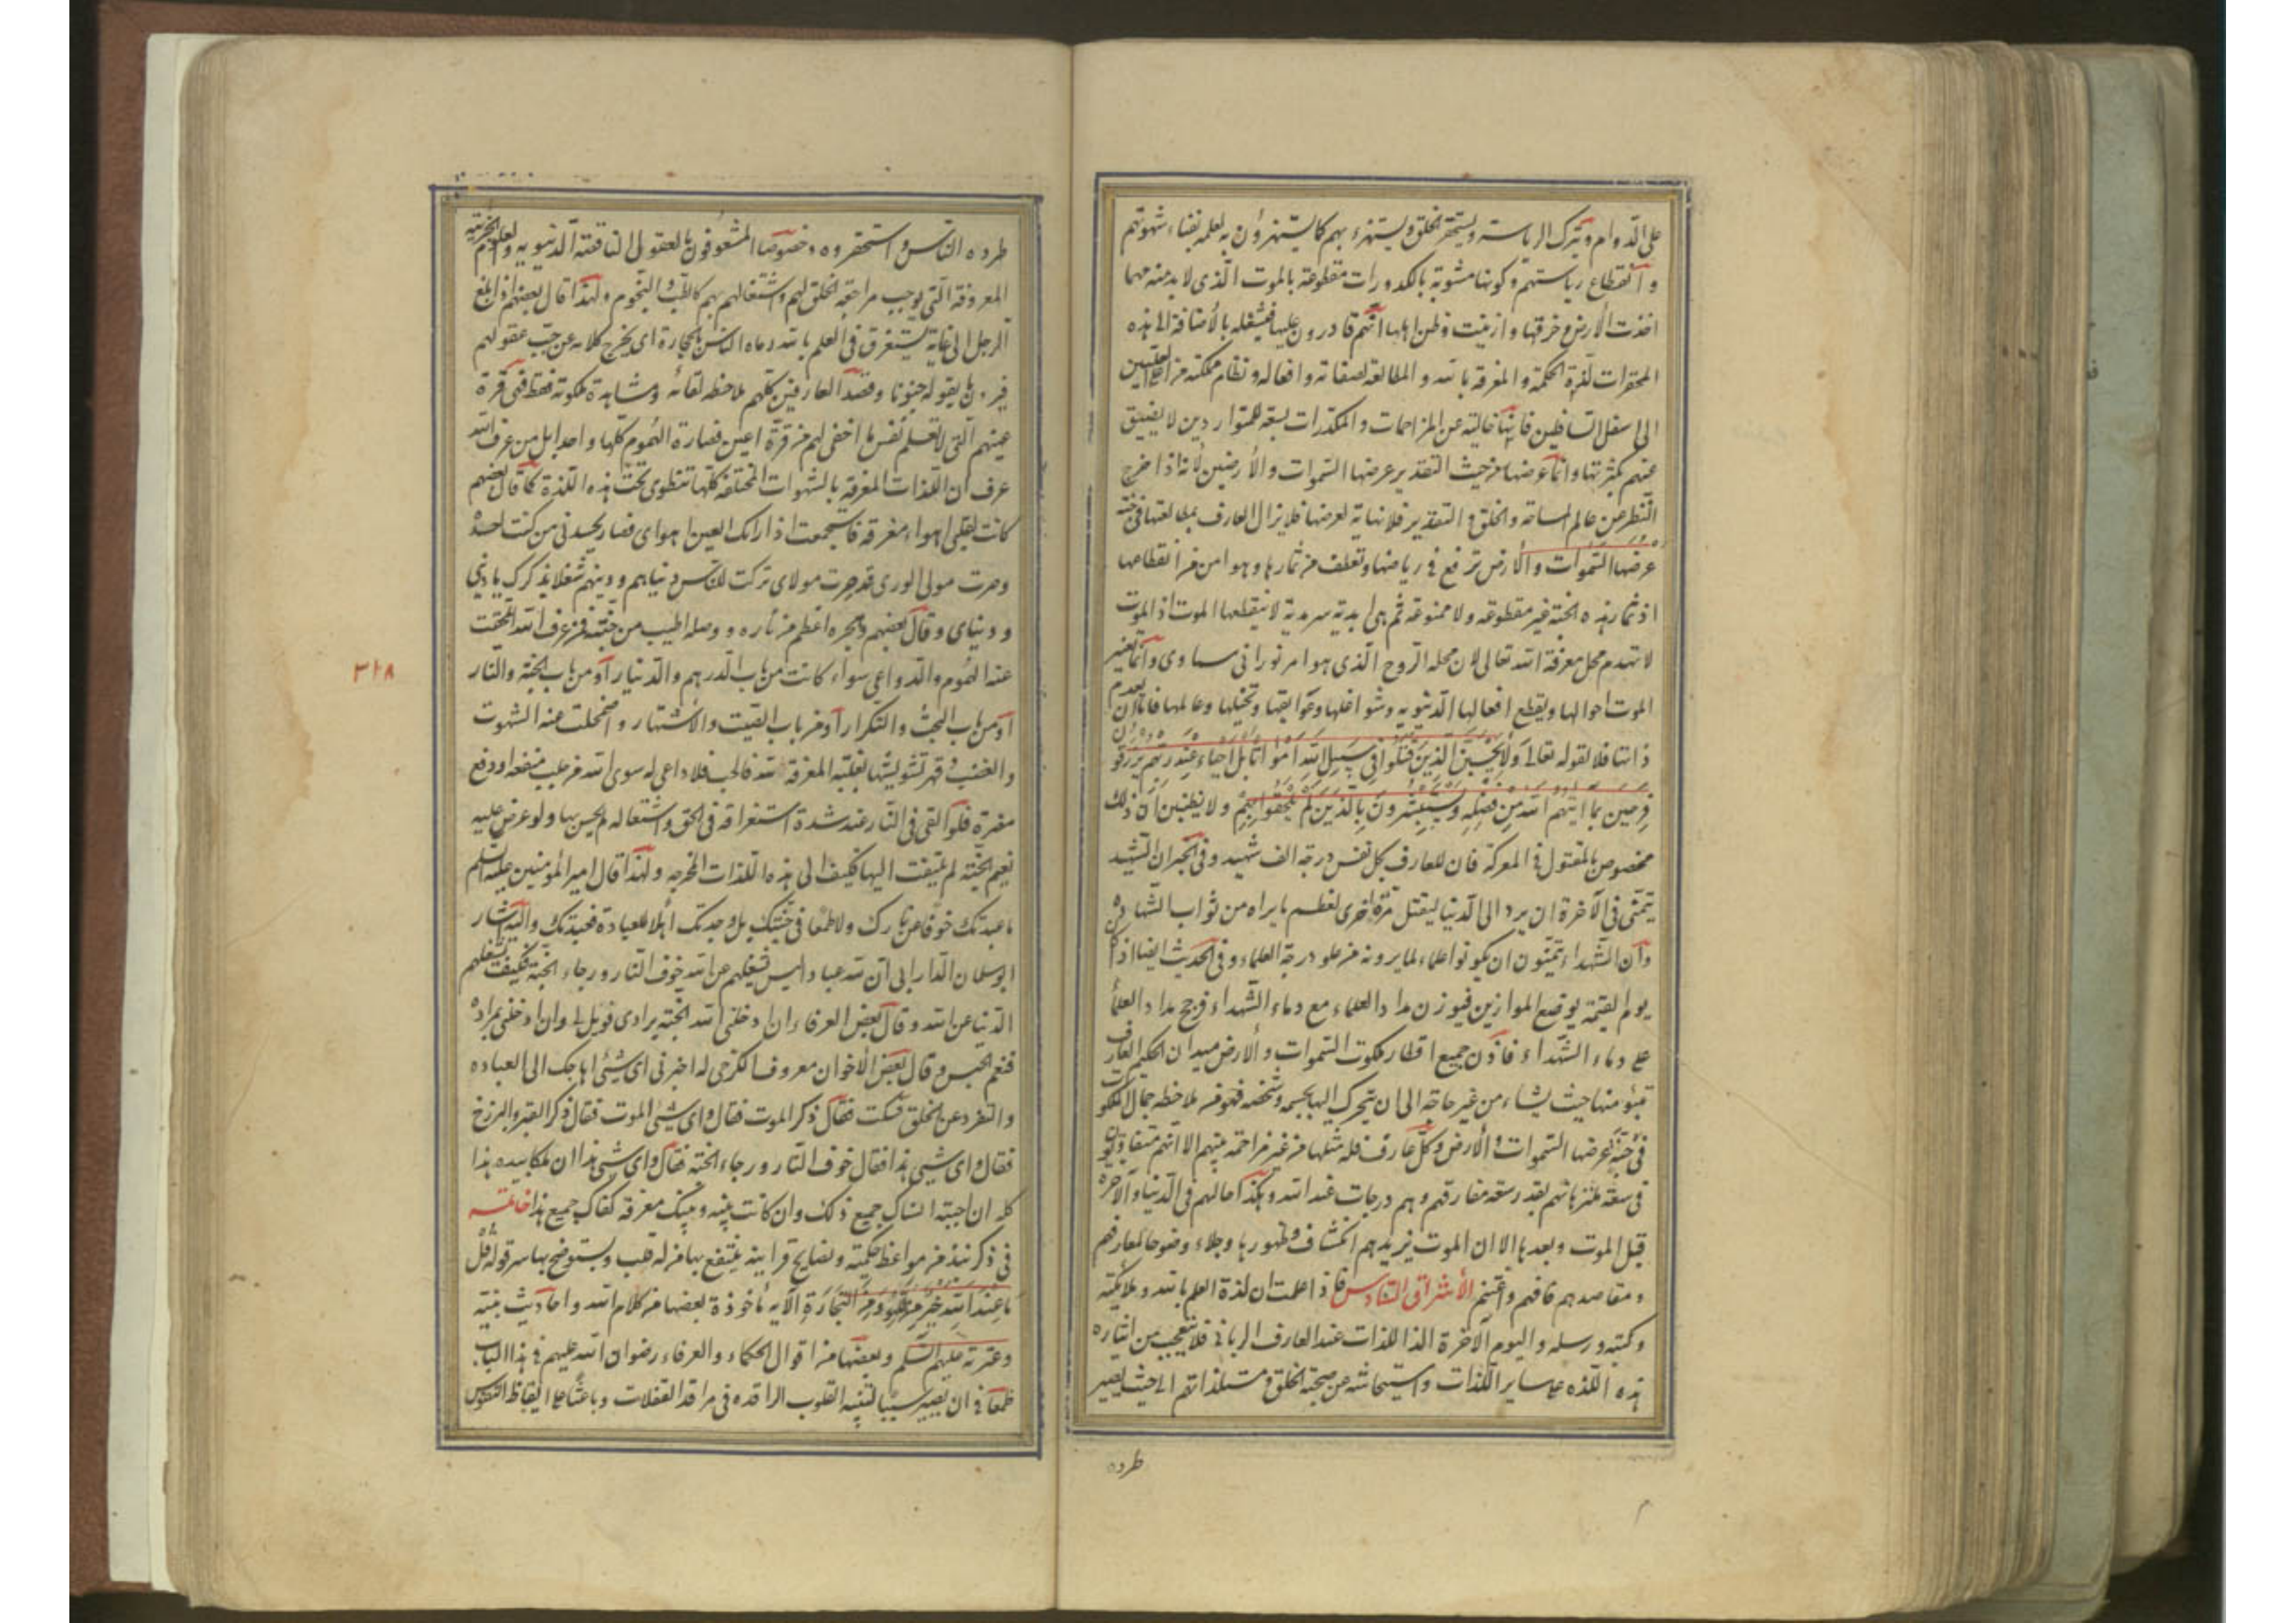 على الدوام وترك الرياسة ويستحقر الخلق ويستهزء بهم كما يستهزؤن به لعلمه بفناء شهوتهم
وانقطاع رياستهم وكونها مشوبة بالكدورات مقطوعة بالموت الذى لا بد منه مهما
اخذت الأرض زخرفها وازينت وظن اهلها انهم قادرون عليها فيشغله بالأضافة الى هذه
المحقرات لذة الحكمة والمعرفة بالله والمطالعة لصفاته وافعاله ونظام مملكته من اعلى عليين
الى اسفل السافلين فانها خالية عن المزاحمات والمكدرات يسعه للمتواردين لا يضيق
عنهم بكثرتها وانما عرضها من حيث التقدير عرضها السموات والأرضين لانه اذا خرج
النظر عن عالم المساحة والخلق والتقدير فلا نهاية لعرضها فلا يزال العارف بمطالعتها فى جنة
عرضها السموات والأرض ترفع فى رياضها وتعلف من ثمارها وهو امن من انقطاعها
اذ ثمار هذه الجنة غير مقطوعه ولا ممنوعه ثم هى ابدية سرمدية لا يقطعها الموت اذ الموت
لا تهدم محل معرفة الله تعالى لان محله الروح الذى هو امر نورانى سماوى وانما تغير
الموت احوالها ويقطع افعالها الدنيويه وشواغلها وعوايقها وتخيلها وعالمها فاما ان يعدم
ذاتها فلا لقوله تعالى وَلَا تَحْسَبَنَّ الَّذِينَ قُتِلُوا فِى سَبِيلِ اللهِ أَمْوَاتًا بَلْ أَحْيَاءٌ عِنْدَ رَبِّهِمْ يُرْزَقُونَ
فَرِحِينَ بِمَا آتَيهُمُ اللهُ مِنْ فَضْلِهِ وَيَسْتَبْشِرُونَ بِالَّذِينَ لَمْ يَلْحَقُوا بِهِمْ ولا تظنين ان ذلك
مخصوص بالمقتول فى المعركة فان للعارف بكل نفس درجة الف شهيد وفى الخبر ان الشهيد
يتمنى فى الآخرة ان يرد الى الدنيا ليقتل مرة اخرى لعظم ما يراه من ثواب الشهادة
وان الشهداء يتمنون ان يكونوا علماء لما يرونه من علو درجة العلماء وفى الحديث ايضا اذا كان
يوم القيمة يوضع الموازين فيوزن مداد العلماء مع دماء الشهداء فرجح مداد العلماء
على دماء الشهداء فاذن جميع اقطار ملكوت السموات والأرض ميدان الحكيم العارف
تبوء منها حيث يشاء من غير حاجة الى ان يتحرك اليها بجسمه وشخصه فهو من ملاحظه جمال الملكوت
فى جنة عرضها السموات والأرض وكل عارف فله مثلها من غير مزاحمة بينهم الا انهم متفاوتون
فى سعة متنزهاتهم بقدر سعة معارفهم وهم درجات عند الله وهكذا حالهم فى الدنيا والآخرة
قبل الموت وبعدها الا ان الموت يزيدهم انكشاف وظهورها وجلاء وضوحا لمعارفهم
ومقاصدهم فافهم واغتنم الأشراق السادس فاذا علمت ان لذة العلم بالله وملائكته
وكتبه ورسله واليوم الآخرة الذ اللذات عند العارف الربانى فلا تتعجب من ايثاره
هذه اللذه على ساير اللذات واستيحاشه عن صحبة الخلق ومستلذاتهم الى حيث يصير
طرده
طرده الناس واستحقروه وخصوصا المشعوفون بالعقول الناقصة الدنيويه والعلوم الجزئية
المعروفة التى يوجب مراجعة الخلق لهم واشتغالهم بهم كالطب والنجوم ولهذا قال بعضهم اذا بلغ
الرجل الى غاية يستغرق فى العلم بالله رماه الناس بالحجارة اى يخرج كلامه عن حجب عقولهم
فيرون ما يقوله جنونا وقصد العارفين كلهم ملاحظه لقائه ومشاهدة ملكوته فقط فهى قرة
عينهم التى لا تعلم نفس ما اخفى لهم من قرة اعين فصارة الهموم كلها واحدا بل من عرف الله
عرف ان اللذات المفرقة بالشهوات المختلفه كلها تنطوى تحت هذه اللذة كما قال بعضهم
كانت لقلبى اهواء مفرقة فاستجمعت اذ اراك العين اهواى فصار يحسدنى من كنت احسده
وصرت مولى الورى قد صرت مولاى تركت للناس دنياهم ودينهم شغلا بذكرك يا دينى
ودنياى وقال بعضهم وهجره اعظم من ناره ووصله اطيب من جنته فمن عرف الله انمحقت
عنه الهموم والدواعى سواء كانت من باب الدرهم والدينار او من باب الجنة والنار
او من باب البحث والتكرار او من باب الصيت والأشتهار واضمحلت عنه الشهوت
والغضب وقهر تشويشها بغلبة المعرفة لله فالحب فلا داعى له سوى الله من جلب منفعه او دفع
مضرة فلو القى فى النار عند شدة استغراقه فى الحق واشتغاله لم يحس بها ولو عرض عليه
نعيم الجنة لم يلتفت اليها فكيف الى هذه اللذات المخدجه ولهذا قال امير المؤمنين عليه السلم
ما عبدتك خوفا من نارك ولا طمعا فى جنتك بل وجدتك أهلا للعبادة فعبدتك واليه اشار
ابو سليمان الدارانى ان لله عبادا ليس يشغلهم عن الله خوف النار ورجاء الجنة فكيف تشغلهم
الدنيا عن الله وقال بعض العرفاء ان ادخلنى الله الجنة برادى فويل لى وان ادخلنى بمراده
فنعم الحبس وقال بعض الأخوان معروف الكرخى له اخبرنى اى شيئ اهاجك الى العباده
والتفرد عن الخلق فسكت فقال ذكر الموت فقال واى شيئ الموت فقال ذكر القبر والبرزخ
فقال واى شيئ هذا فقال خوف النار ورجاء الجنة فقال واى شيئ هذا ان ملكا بيده هذا
كله ان احببته انساك جميع ذلك وان كانت بينه وبينك معرفة كفاك جميع هذا خاتمة
فى ذكر نبذ من مواعظ حكمية ونصايح قرابية ينتفع بها من له قلب ويستوضح بها سر قوله قل
مَا عِنْدَ اللهِ خَيْرٌ مِنَ اللَّهْوِ وَمِنَ التِّجَارَةِ الآيه مأخوذة بعضها من كلام الله واحاديث نبيه
وعترته عليهم السلم وبعضها من اقوال الحكماء والعرفاء رضوان الله عليهم فى هذا الباب
طمعا فى ان يصير سببا لتنبه القلوب الراقده فى مراقد الغفلات وباعثا على ايقاظ النفوس
٣١٨